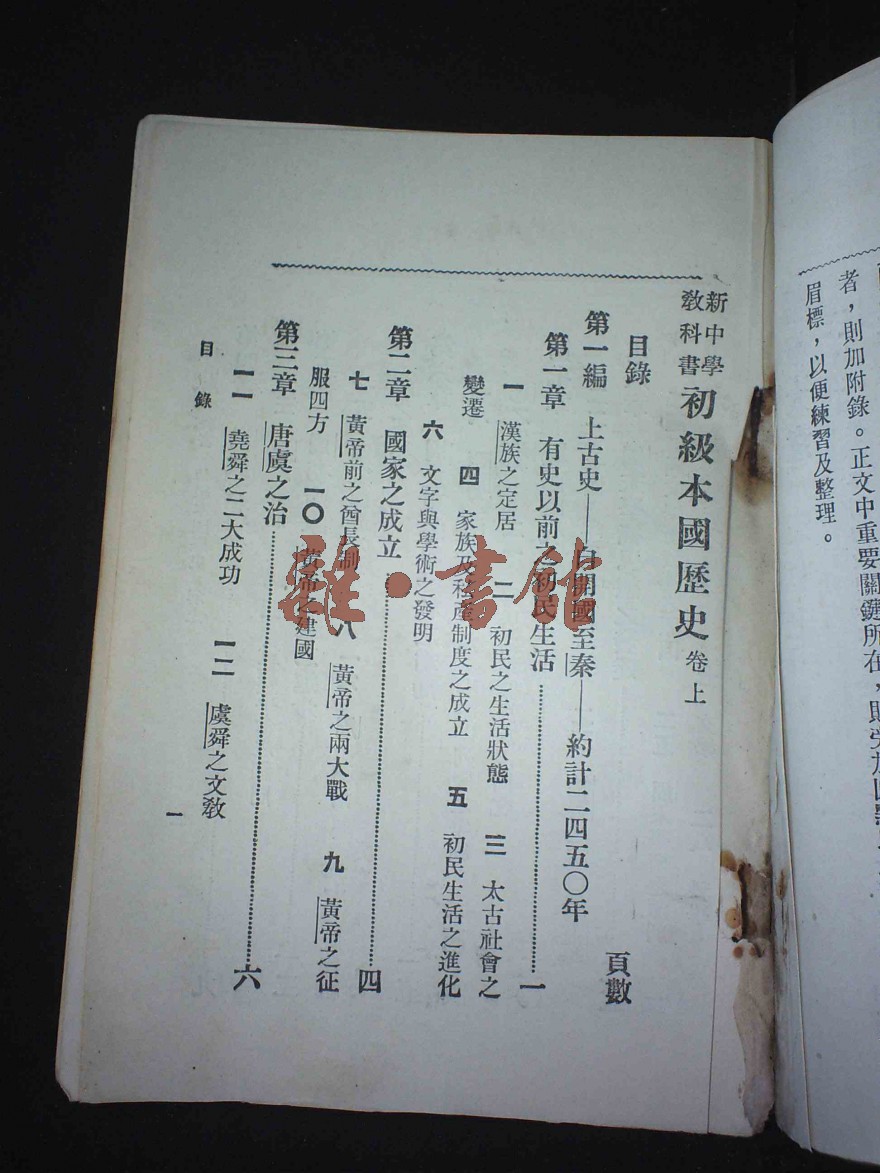 者，則加附錄。正文中重要關鍵所在，則
眉標，以便練習及整理。
新中學
教科書
初級本國歷史 卷上
目錄 頁數
第一編 上古史——自開國至秦——約計二四五〇年
第一章 有史以前之初民生活……一
一 漢族之定居 二 初民之生活狀態 三 太古社會之
變遷 四 家族及私產制度之成立 五 初民生活之進化
六 文字與學術之發明
第二章 國家之成立……四
七 黃帝前之酋長制 八 黃帝之兩大戰 九 黃帝之征
服四方 一〇 黃帝之建國
第三章 唐虞之治……六
一一 堯舜之二大成功 一二 虞舜之文教
目錄 一
雜·書館